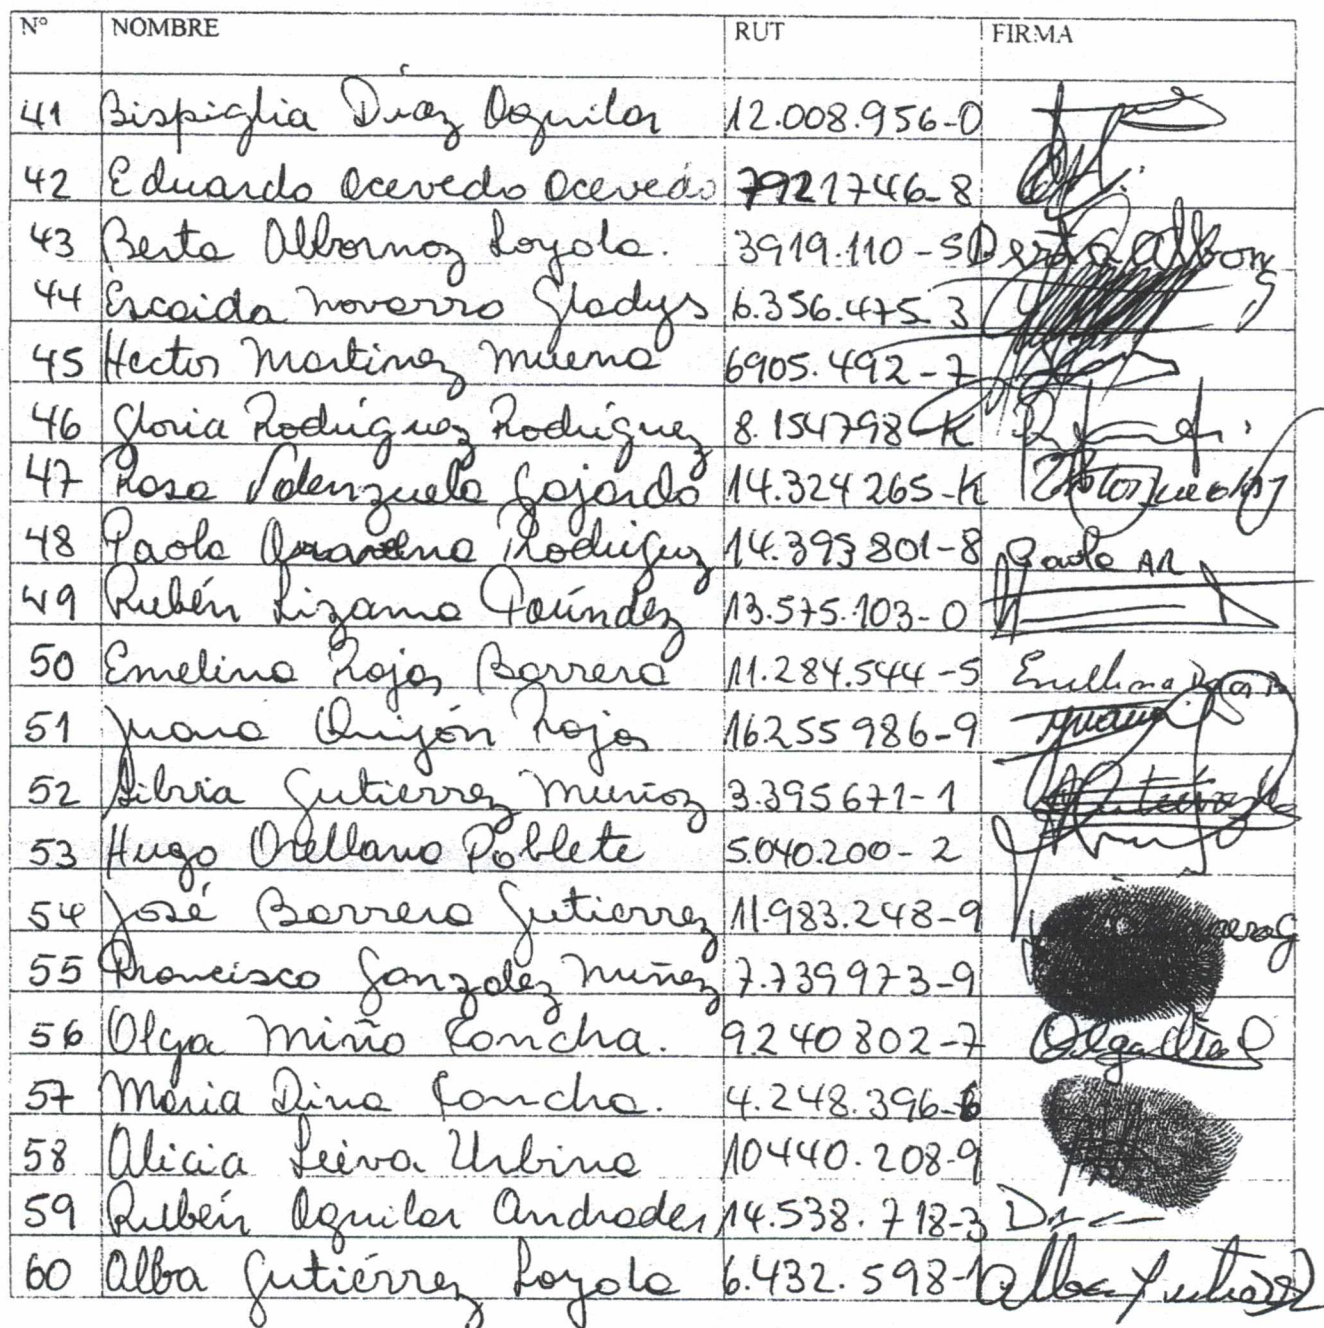 N° NOMBRE RUT FIRMA
41 Bispiglia Díaz Aguilar 12.008.956-0
42 Eduardo Acevedo Acevedo 7921746-8
43 Berta Albornoz Loyola. 3919.110-5 Berta Albornoz
44 Escaida Navarro Gladys 6.356.475-3
45 Hector Martinez 6905.492-7
46 Gloria Rodriguez Rodriguez 8.154798-K
47 Rosa Valenzuela Gajardo 14.324265-K
48 Paola Aravena Rodriguez 14.393801-8 Paola AR
49 Rubén Lizama Faúndez 13.575.103-0
50 Emelina Rojas Barrera 11.284.544-5
51 Juana Quijón Rojas 16255986-9 Juana
52 Silvia Gutierrez Muñoz 3.395671-1
53 Hugo Orellana Poblete 5.040.200-2
54 José Barrera Gutierrez 11.983.248-9
55 Francisco Gonzalez Nuñez 7.739973-9
56 Olga Miño Concha. 9.240802-7 Olga
57 Maria Dina Concha. 4.248.396-6
58 Alicia Leiva Urbina 10440.208-9
59 Rubén Aguilar Andrades 14.538.718-3
60 Alba Gutiérrez Loyola 6.432.598-1 Alba Gutiérrez